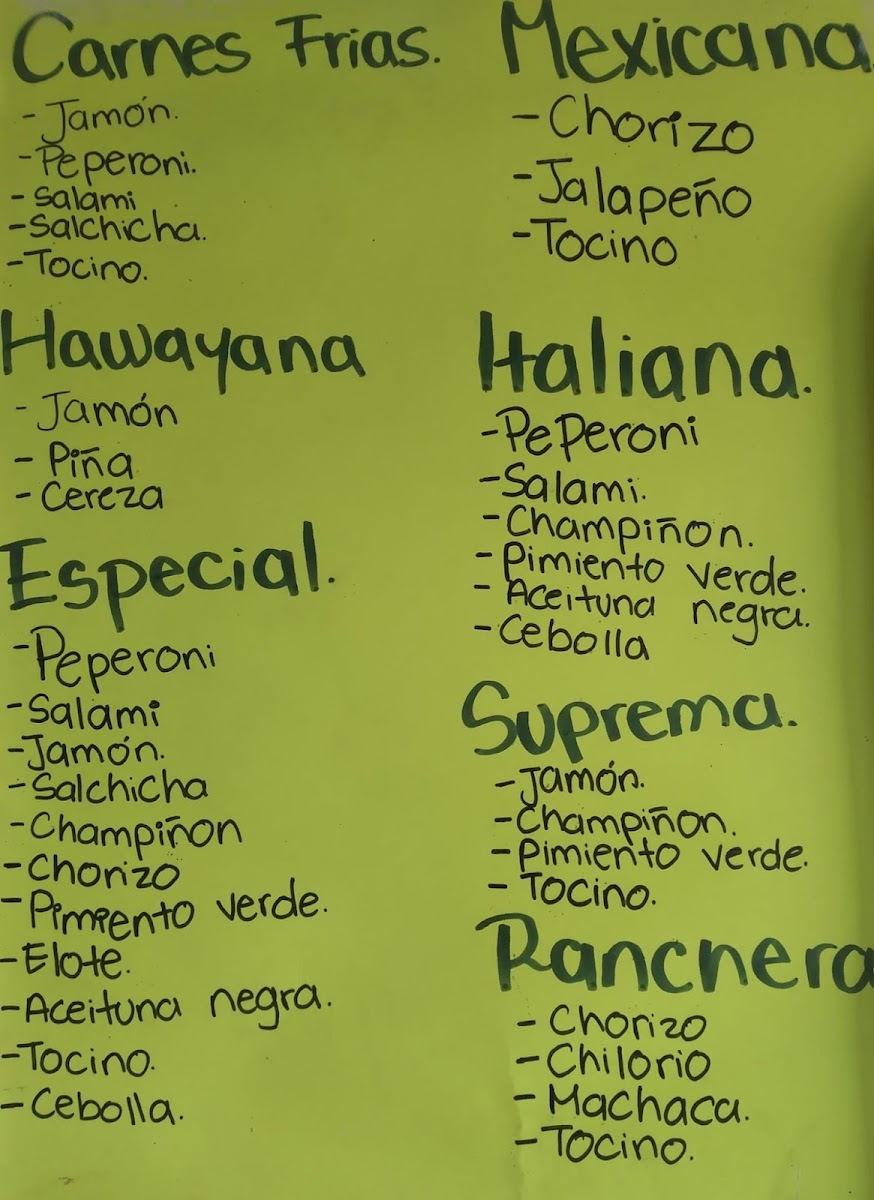 Carnes Frias.
- Jamón.
- Peperoni.
- Salami
- Salchicha.
- Tocino.
Hawayana
- Jamón
- Piña
- Cereza
Especial.
- Peperoni
- Salami
- Jamón.
- Salchicha
- Champiñon
- Chorizo
- Pimiento verde.
- Elote.
- Aceituna negra.
- Tocino.
- Cebolla.
Mexicana
- Chorizo
- Jalapeño
- Tocino
Italiana.
- Peperoni
- Salami.
- Champiñon.
- Pimiento verde.
- Aceituna negra.
- Cebolla
Suprema.
- Jamón.
- Champiñon.
- Pimiento verde.
- Tocino.
Ranchera
- Chorizo
- Chilorio
- Machaca.
- Tocino.